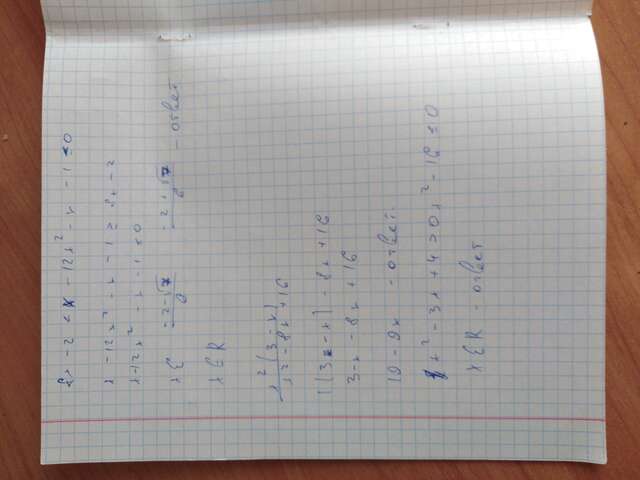 x - 2 < x - 12x² - x - 1 ≤ 0
x - 12x² - x - 1 ≥ 5x - 2
x - 12x² - x - 1 ≤ 0
x ∈ (-2-√7)/6 (-2+√7)/6 - ответ
x ∈ R
x²(3-x) / x² - 8x + 16
1(3-x) - 8x + 16
3 - x - 8x + 16
19 - 9x - ответ.
x² - 3x + 4 > 0 x² - 16 ≤ 0
x ∈ R - ответ